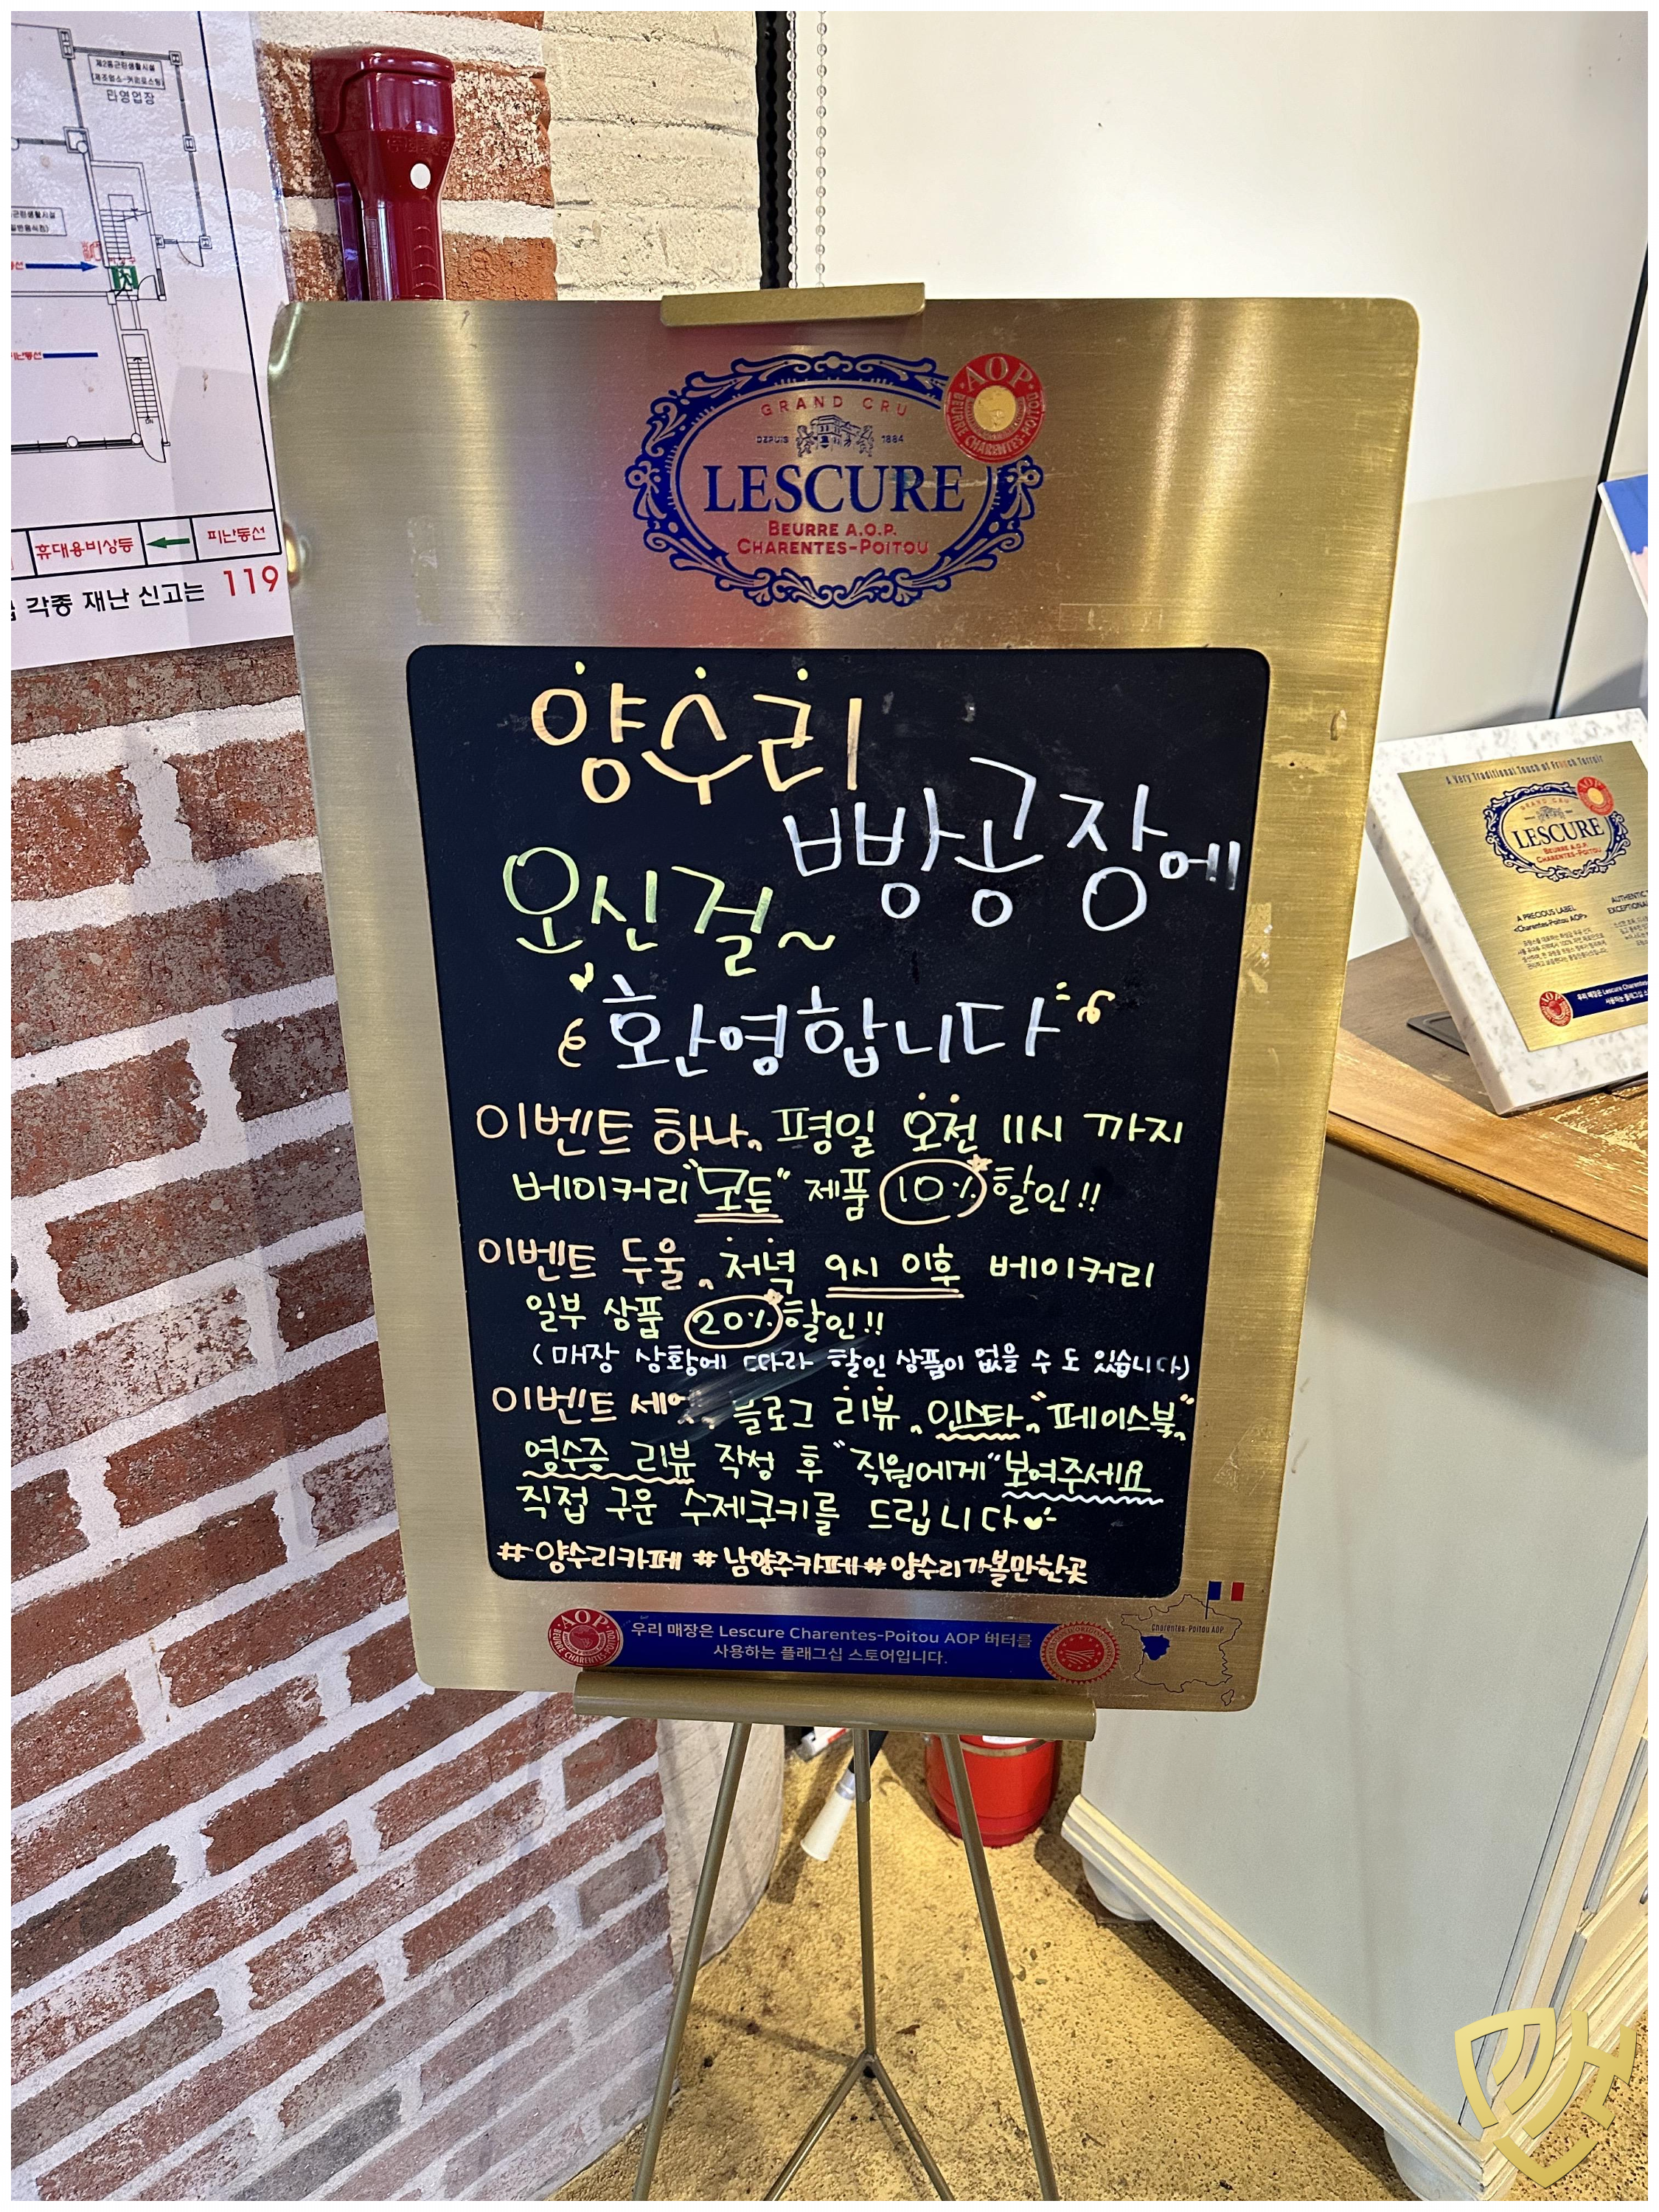 제2종근린생활시설
타영업장
휴대용비상등
피난동선
각종 재난 신고는 119
GRAND CRU
DEPUIS 1884
LESCURE
BEURRE A.O.P.
CHARENTES-POITOU
AOP
BEURRE CHARENTES-POITOU
양수리
빵공장에
오신걸~
환영합니다
이벤트 하나, 평일 오전 11시 까지
베이커리 "모든" 제품 10% 할인!!
이벤트 두울, 저녁 9시 이후 베이커리
일부 상품 20% 할인!!
(매장 상황에 따라 할인 상품이 없을 수 도 있습니다)
이벤트 세엣, 블로그 리뷰, 인스타, "페이스북"
영수증 리뷰 작성 후 "직원에게" 보여주세요
직접 구운 수제쿠키를 드립니다
#양수리카페 #남양주카페 #양수리가볼만한곳
AOP
BEURRE CHARENTES-POITOU
우리 매장은 Lescure Charentes-Poitou AOP 버터를
사용하는 플래그십 스토어입니다.
Charentes-Poitou AOP
A Very Traditional Touch of French Terroir
GRAND CRU
LESCURE
BEURRE A.O.P.
CHARENTES-POITOU
A PRECIOUS LABEL
<Charentes-Poitou AOP>
AUTHENTIC
AOP
우리 매장은 Lescure